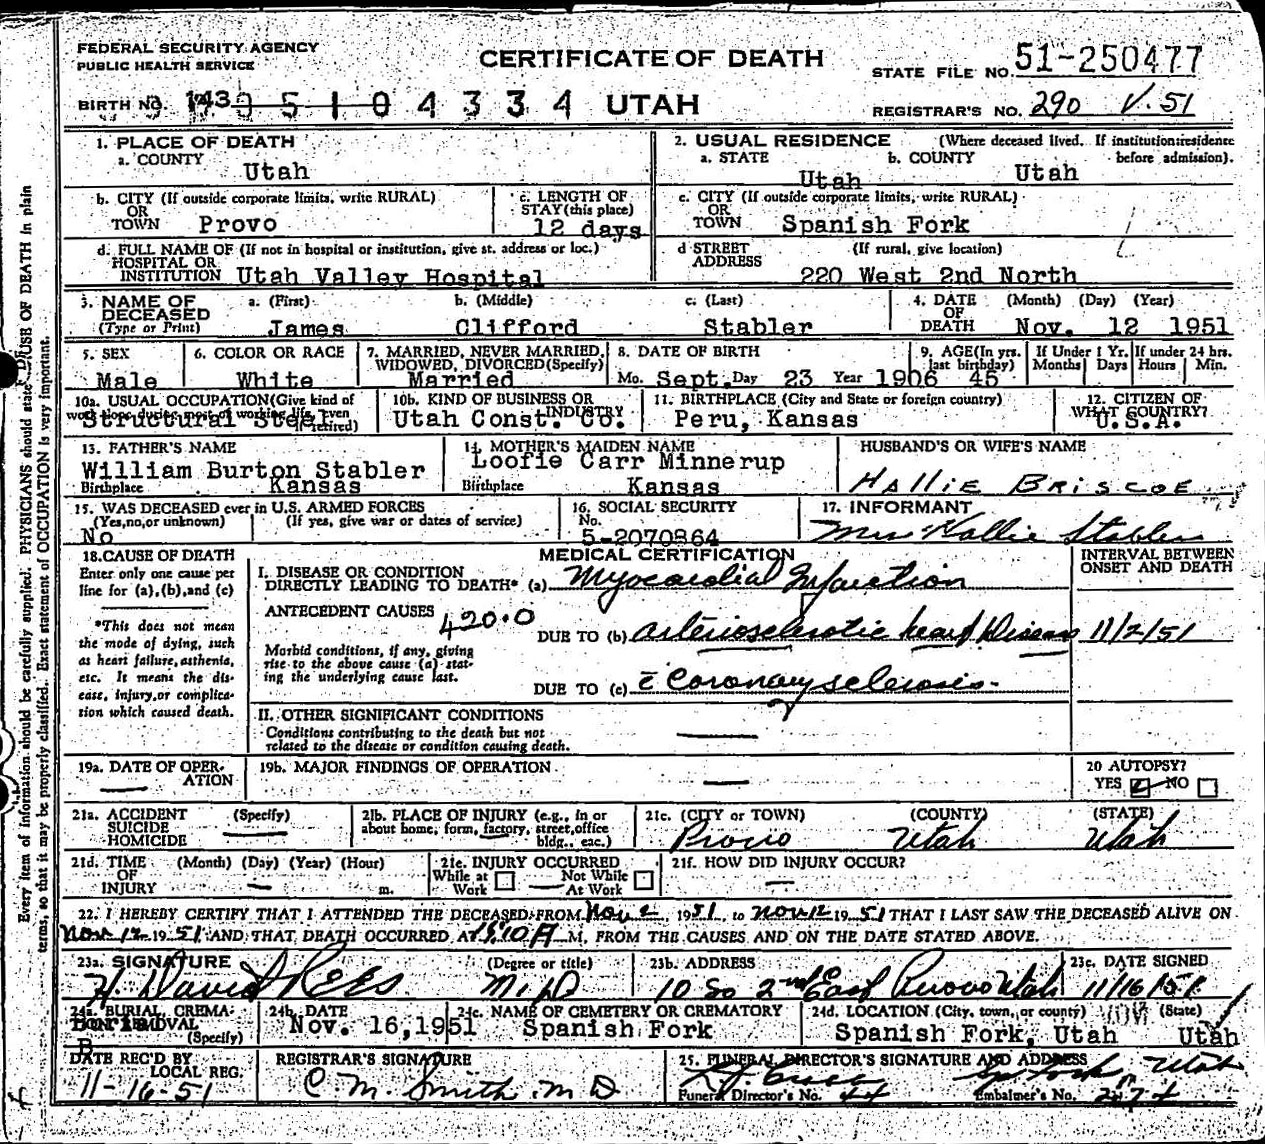 FEDERAL SECURITY AGENCY
PUBLIC HEALTH SERVICE
CERTIFICATE OF DEATH
STATE FILE NO. 51-250477
BIRTH NO. 143 5104334 UTAH
REGISTRAR'S NO. 290 V.51
1. PLACE OF DEATH
a. COUNTY
Utah
2. USUAL RESIDENCE (Where deceased lived. If institution: residence before admission).
a. STATE b. COUNTY
Utah Utah
b. CITY (If outside corporate limits, write RURAL)
OR
TOWN Provo
c. LENGTH OF
STAY (this place)
12 days
c. CITY (If outside corporate limits, write RURAL)
OR
TOWN Spanish Fork
d. FULL NAME OF (If not in hospital or institution, give st. address or loc.)
HOSPITAL OR
INSTITUTION Utah Valley Hospital
d STREET (If rural, give location)
ADDRESS
220 West 2nd North
3. NAME OF a. (First) b. (Middle) c. (Last)
DECEASED
(Type or Print) James Clifford Stabler
4. DATE (Month) (Day) (Year)
OF
DEATH Nov. 12 1951
5. SEX
Male
6. COLOR OR RACE
White
7. MARRIED, NEVER MARRIED,
WIDOWED, DIVORCED (Specify)
Married
8. DATE OF BIRTH
Mo. Sept. Day 23 Year 1906
9. AGE (In yrs. last birthday)
45
If Under 1 Yr. If under 24 hrs.
Months Days Hours Min.
10a. USUAL OCCUPATION (Give kind of
work done during most of working life, even
if retired)
Structural Steel
10b. KIND OF BUSINESS OR
INDUSTRY
Utah Const. Co.
11. BIRTHPLACE (City and State or foreign country)
Peru, Kansas
12. CITIZEN OF
WHAT COUNTRY?
U.S.A.
13. FATHER'S NAME
William Burton Stabler
Birthplace Kansas
14 MOTHER'S MAIDEN NAME
Loofie Carr Minnerup
Birthplace Kansas
HUSBAND'S OR WIFE'S NAME
HALLIE BRISCOE
15. WAS DECEASED ever in U.S. ARMED FORCES
(Yes, no, or unknown) (If yes, give war or dates of service)
No
16. SOCIAL SECURITY
No.
5-2070864
17. INFORMANT
Mrs Hallie Stabler
18. CAUSE OF DEATH
Enter only one cause per
line for (a), (b), and (c)
*This does not mean
the mode of dying, such
as heart failure, asthenia,
etc. It means the dis-
ease, injury, or complica-
tion which caused death.
MEDICAL CERTIFICATION
INTERVAL BETWEEN
ONSET AND DEATH
I. DISEASE OR CONDITION
DIRECTLY LEADING TO DEATH* (a) Myocardial Infarction
ANTECEDENT CAUSES 420.0
DUE TO (b) arteriosclerotic heart Disease 11/2/51
Morbid conditions, if any, giving
rise to the above cause (a) stat-
ing the underlying cause last.
DUE TO (c) c̄ Coronary sclerosis.
II. OTHER SIGNIFICANT CONDITIONS
Conditions contributing to the death but not
related to the disease or condition causing death.
19a. DATE OF OPER-
ATION
19b. MAJOR FINDINGS OF OPERATION
20 AUTOPSY?
YES NO
21a. ACCIDENT (Specify)
SUICIDE
HOMICIDE
21b. PLACE OF INJURY (e.g., in or
about home, form, factory, street, office
bldg., eac.)
21c. (CITY or TOWN) (COUNTY) (STATE)
Provo Utah Utah
21d. TIME (Month) (Day) (Year) (Hour)
OF
INJURY m.
21e. INJURY OCCURRED
While at Not While
Work At Work
21f. HOW DID INJURY OCCUR?
22. I HEREBY CERTIFY THAT I ATTENDED THE DECEASED FROM Nov 2, 1951, to Nov 12 1951 THAT I LAST SAW THE DECEASED ALIVE ON
Nov 12 1951 AND THAT DEATH OCCURRED AT M, FROM THE CAUSES AND ON THE DATE STATED ABOVE.
23a. SIGNATURE (Degree or title)
H David Rees M.D
23b. ADDRESS
10 So 2nd East Provo Utah
23c. DATE SIGNED
11/16/51
24a. BURIAL, CREMA-
TION, REMOVAL
(Specify)
24b. DATE
Nov. 16, 1951
24c. NAME OF CEMETERY OR CREMATORY
Spanish Fork
24d. LOCATION (City, town, or county) (State)
Spanish Fork, Utah Utah
DATE REC'D BY
LOCAL REG.
11-16-51
REGISTRAR'S SIGNATURE
C. M. Smith. M D
25. FUNERAL DIRECTOR'S SIGNATURE AND ADDRESS
Sp Fork, Utah
Funeral Director's No. 44 Embalmer's No.
Every item of information should be carefully supplied. PHYSICIANS should state CAUSE OF DEATH in plain
terms, so that it may be properly classified. Exact statement of OCCUPATION is very important.